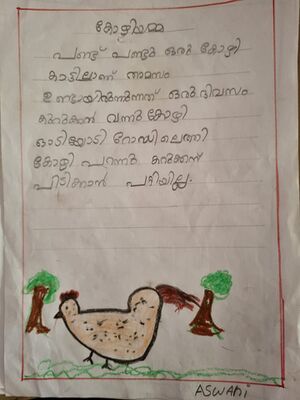 കോഴിയമ്മ
പണ്ട് പണ്ടു ഒരു കോഴി
കാട്ടിലാണ് താമസം
ഉണ്ടായിരുന്നത് ഒരു ദിവസം
കുറുക്കൻ വന്നു കോഴി
ഓടിയോടി റോഡിലെത്തി
കോഴി പറന്നു കുറുക്കന്
പിടിക്കാൻ പറ്റിയില്ല.
ASWANI